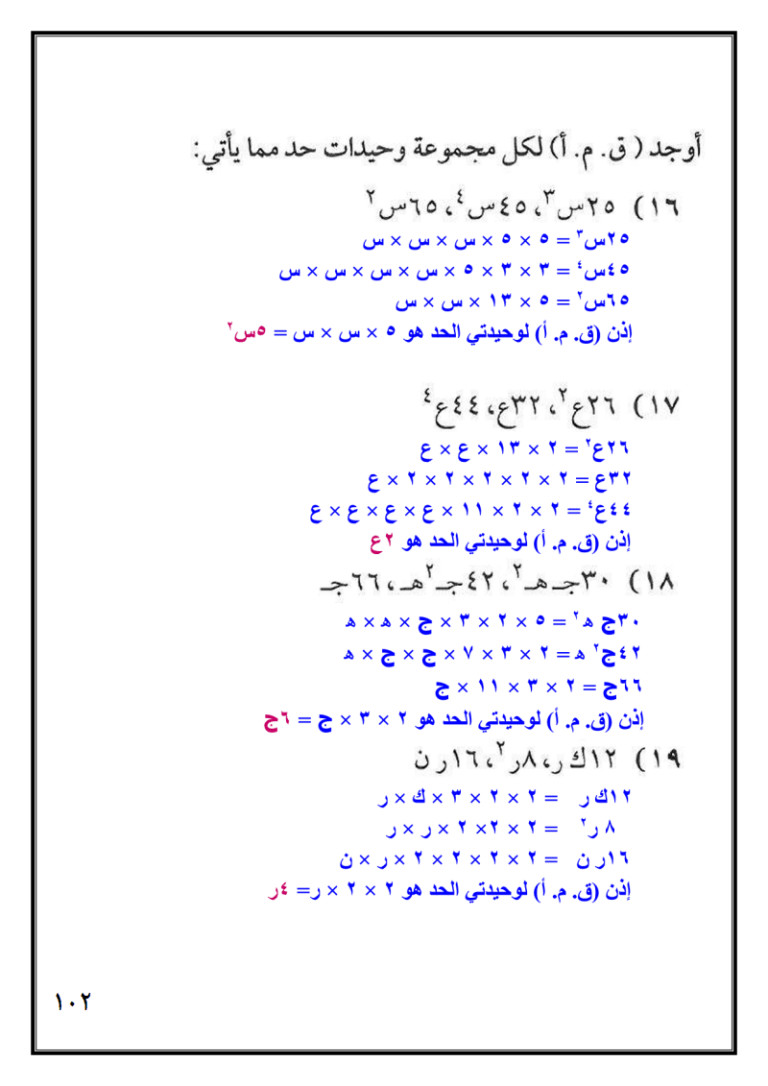 أوجد ( ق. م. أ) لكل مجموعة وحيدات حد مما يأتي:
١٦) ٢٥س³، ٤٥س⁴، ٦٥س²
٢٥س³ = ٥ × ٥ × س × س × س
٤٥س⁴ = ٣ × ٣ × ٥ × س × س × س × س
٦٥س² = ٥ × ١٣ × س × س
إذن (ق. م. أ) لوحيدتي الحد هو ٥ × س × س = ٥س²
١٧) ٢٦ع²، ٣٢ع، ٤٤ع⁴
٢٦ع² = ٢ × ١٣ × ع × ع
٣٢ع = ٢ × ٢ × ٢ × ٢ × ٢ × ع
٤٤ع⁴ = ٢ × ٢ × ١١ × ع × ع × ع × ع
إذن (ق. م. أ) لوحيدتي الحد هو ٢ع
١٨) ٣٠جـ هـ²، ٤٢جـ²هـ، ٦٦جـ
٣٠ج ه² = ٥ × ٢ × ٣ × ج × ه × ه
٤٢ج² ه = ٢ × ٣ × ٧ × ج × ج × ه
٦٦ج = ٢ × ٣ × ١١ × ج
إذن (ق. م. أ) لوحيدتي الحد هو ٢ × ٣ × ج = ٦ج
١٩) ١٢ك ر، ٨ر²، ١٦ر ن
١٢ك ر = ٢ × ٢ × ٣ × ك × ر
٨ ر² = ٢ × ٢× ٢ × ر × ر
١٦ر ن = ٢ × ٢ × ٢ × ٢ × ر × ن
إذن (ق. م. أ) لوحيدتي الحد هو ٢ × ٢ × ر= ٤ر
١٠٢